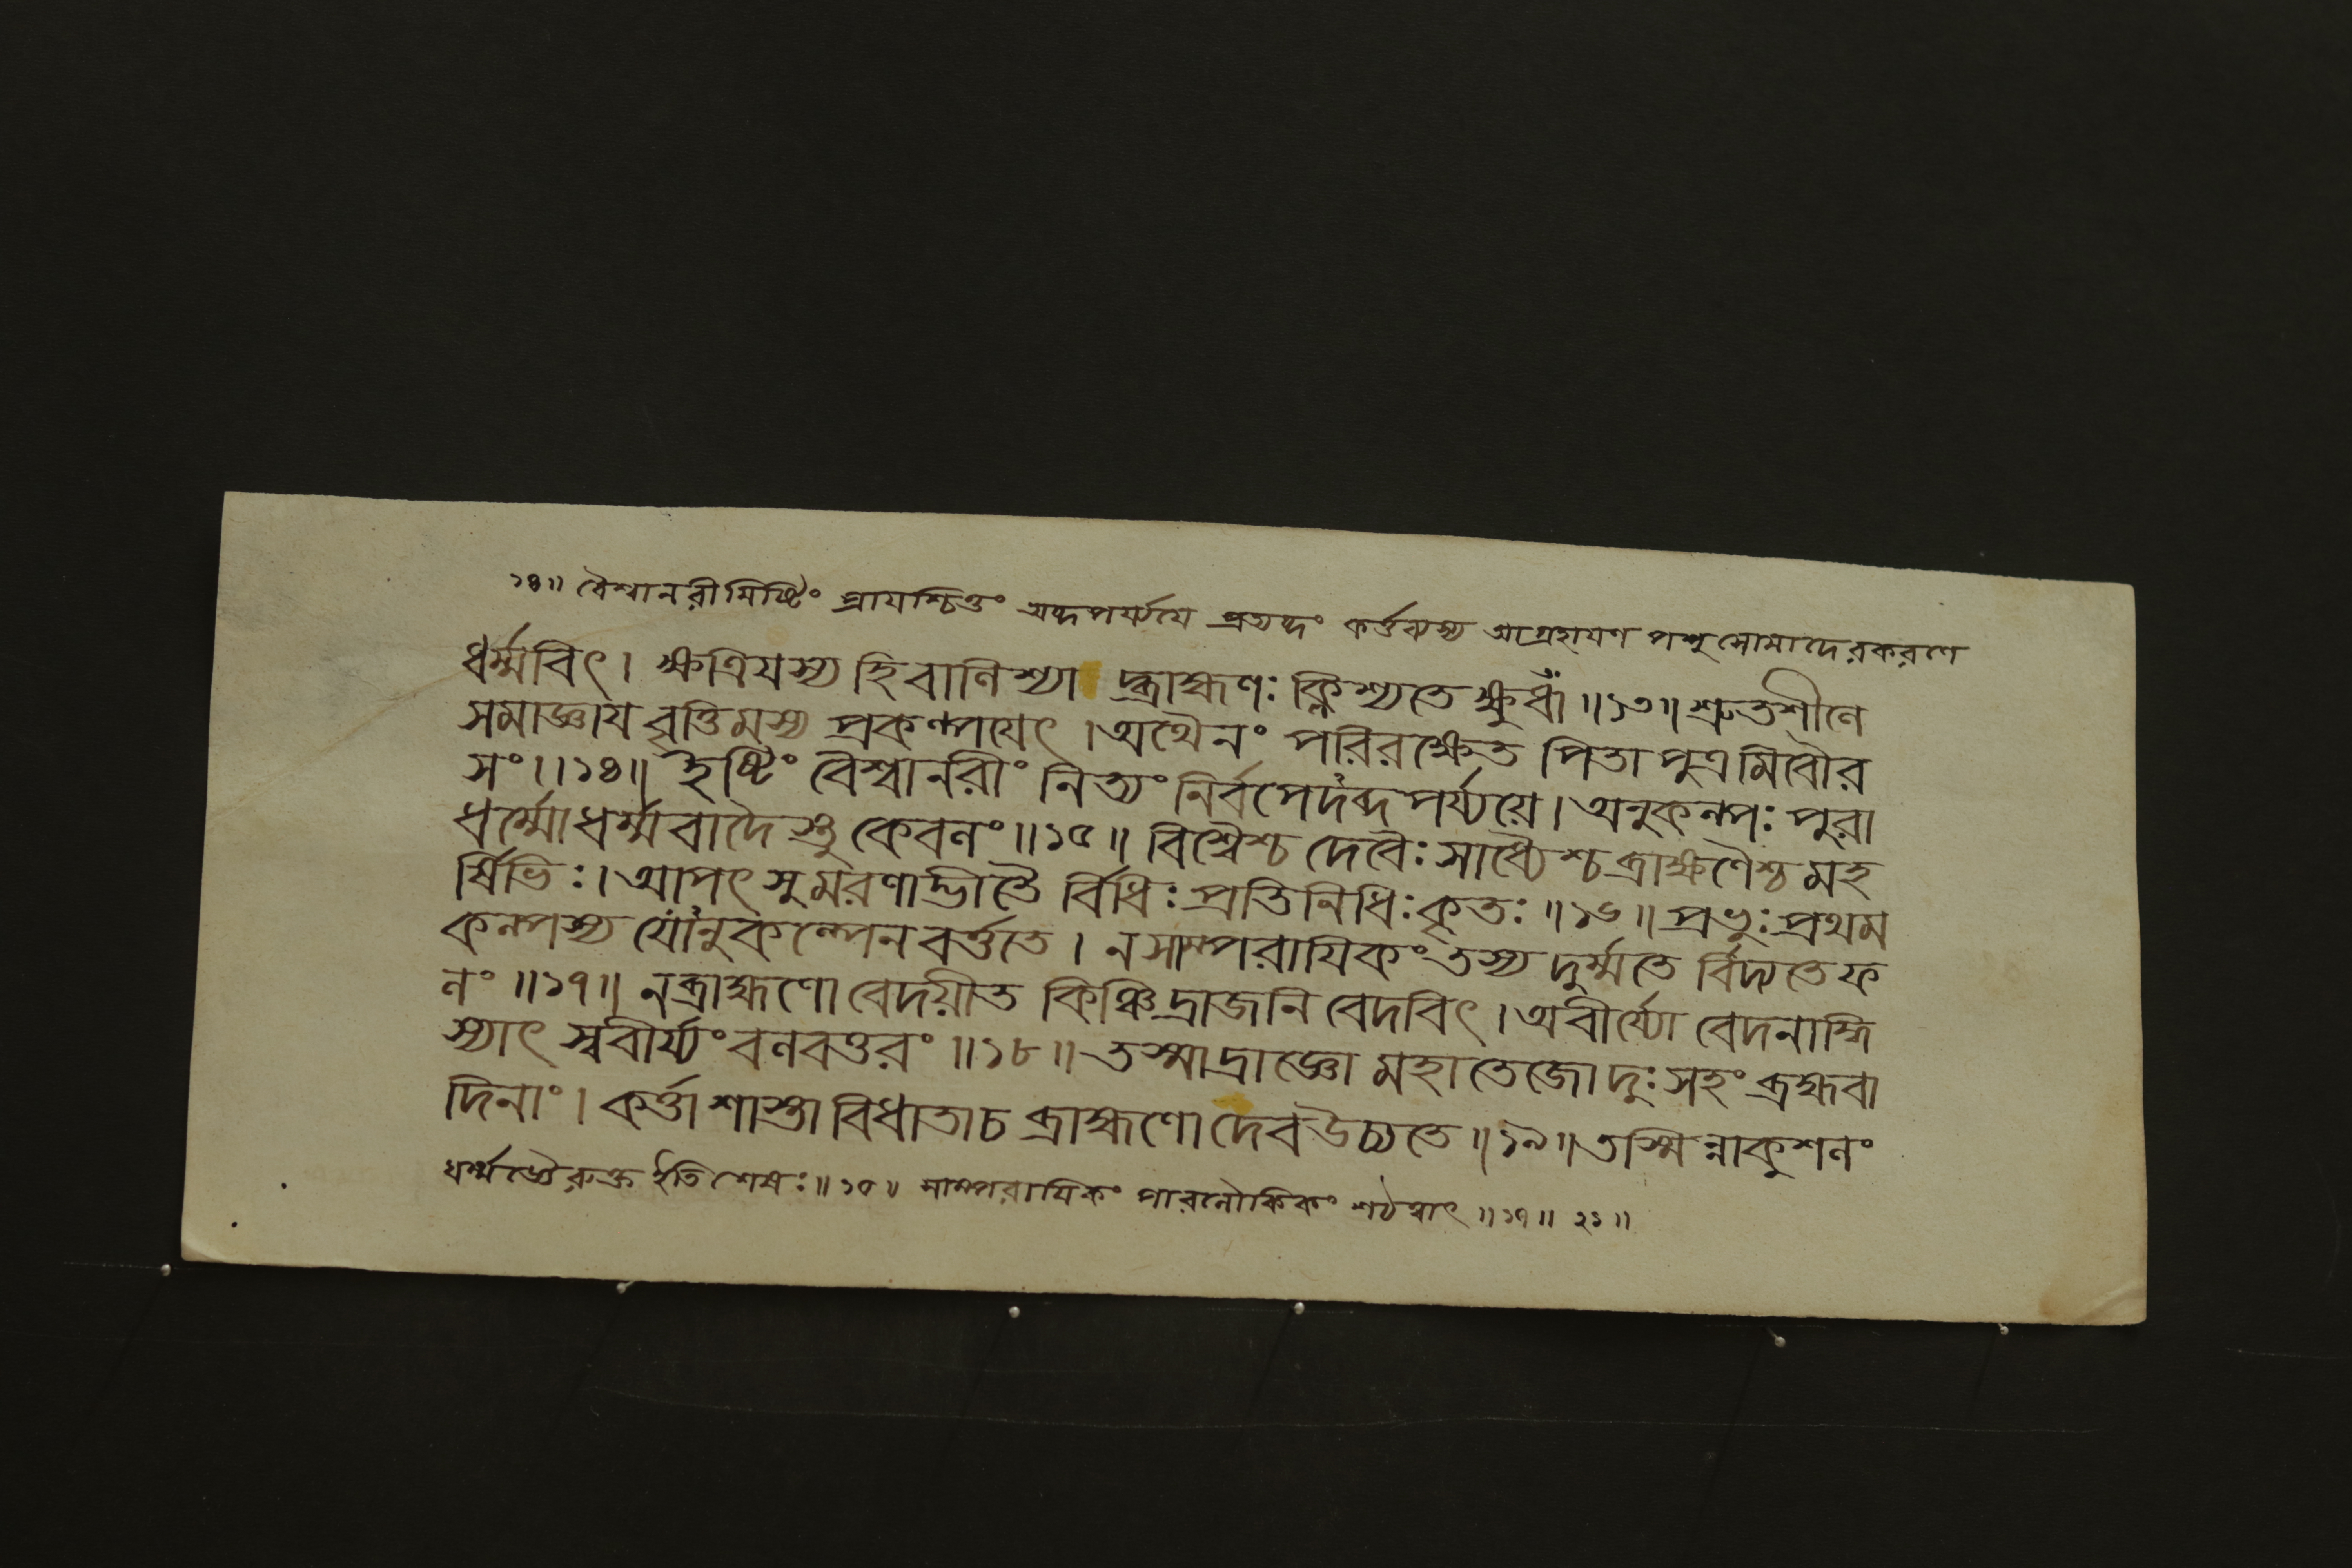 ১৪॥ বৈশ্বানরীমিষ্টিং প্রাযশ্চিত্তং অব্দপর্য্যযে প্রত্যব্দং কর্ত্তব্যস্য আগ্রহাযণ পশুসোমাদেরকরণে
ধর্ম্মবিৎ। ক্ষত্রিযস্য হি বালিশ্যা দ্ব্রাহ্মণঃ ক্লিশ্যতে ক্ষুধা ॥১৩॥ শ্রুতশীলে
সমাজ্ঞায বৃত্তিমস্য প্রকল্পযেৎ। অথৈনং পরিরক্ষেত পিতা পুত্রমিবৌর
সং॥১৪॥ ইষ্টিং বৈশ্বানরীং নিত্যং নির্বপেদব্দপর্য্যয়ে। অনুকল্পঃ পুরা
ধর্ম্মো ধর্ম্মবাদৈস্তু কেবলং॥১৫॥ বিশ্বৈশ্চ দেবৈঃ সাধ্যৈশ্চ ব্রাহ্মণৈশ্চ মহ
র্ষিভিঃ। আপৎসু মরণাদ্ভীতৈ র্বিধিঃ প্রতিনিধিঃ কৃতঃ ॥১৬॥ প্রভুঃ প্রথম
কল্পস্য যোঽনুকল্পেন বর্ত্ততে। ন সাম্পরাযিকং তস্য দুর্ম্মতে র্বিদ্যতে ফ
লং ॥১৭॥ ন ব্রাহ্মণো বেদয়ীত কিঞ্চিদ্রাজনি বেদবিৎ। অবীর্য্যো বেদনাদ্ধি
স্যাৎ স্ববীর্য্যং বলবত্তরং ॥১৮॥ তস্মাদ্রাজ্ঞো মহাতেজো দুঃসহং ব্রহ্মবা
দিনাং। কর্ত্তা শাস্তা বিধাতা চ ব্রাহ্মণো দেব উচ্যতে ॥১৯॥ তস্মিন্নাকুশলং
ধর্ম্মজ্ঞৈরুক্ত ইতি শেষঃ॥১৫॥ সাম্পরাযিকং পারলৌকিকং শঠত্বাৎ ॥১৭॥ ২১॥